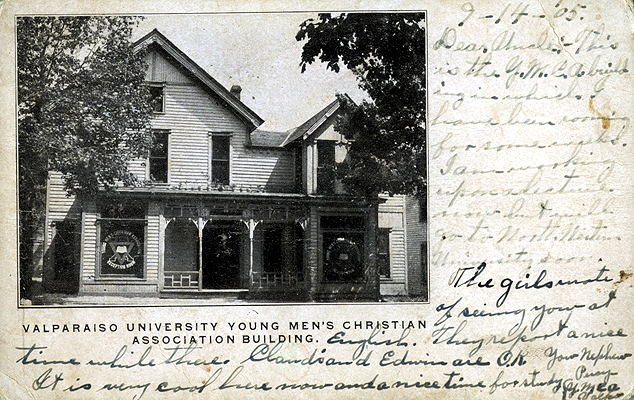 9-14-'05.
Dear Uncle:- This
is the Y.M.C.A build
ing in which I
have been rooming
for some weeks.
I am working
upon a lecture
now but will
go to North Western
University soon.
The girls wrote
of seeing you at
English. They report a nice
time while there. Claud and Edwin are O.K
It is very cool here now and a nice time for study.
Your Nephew
Perry
Y.M.C.A
Valpo
RECEPTION ROOM
VALPARAISO UNIVERSITY YOUNG MEN'S CHRISTIAN
ASSOCIATION BUILDING.